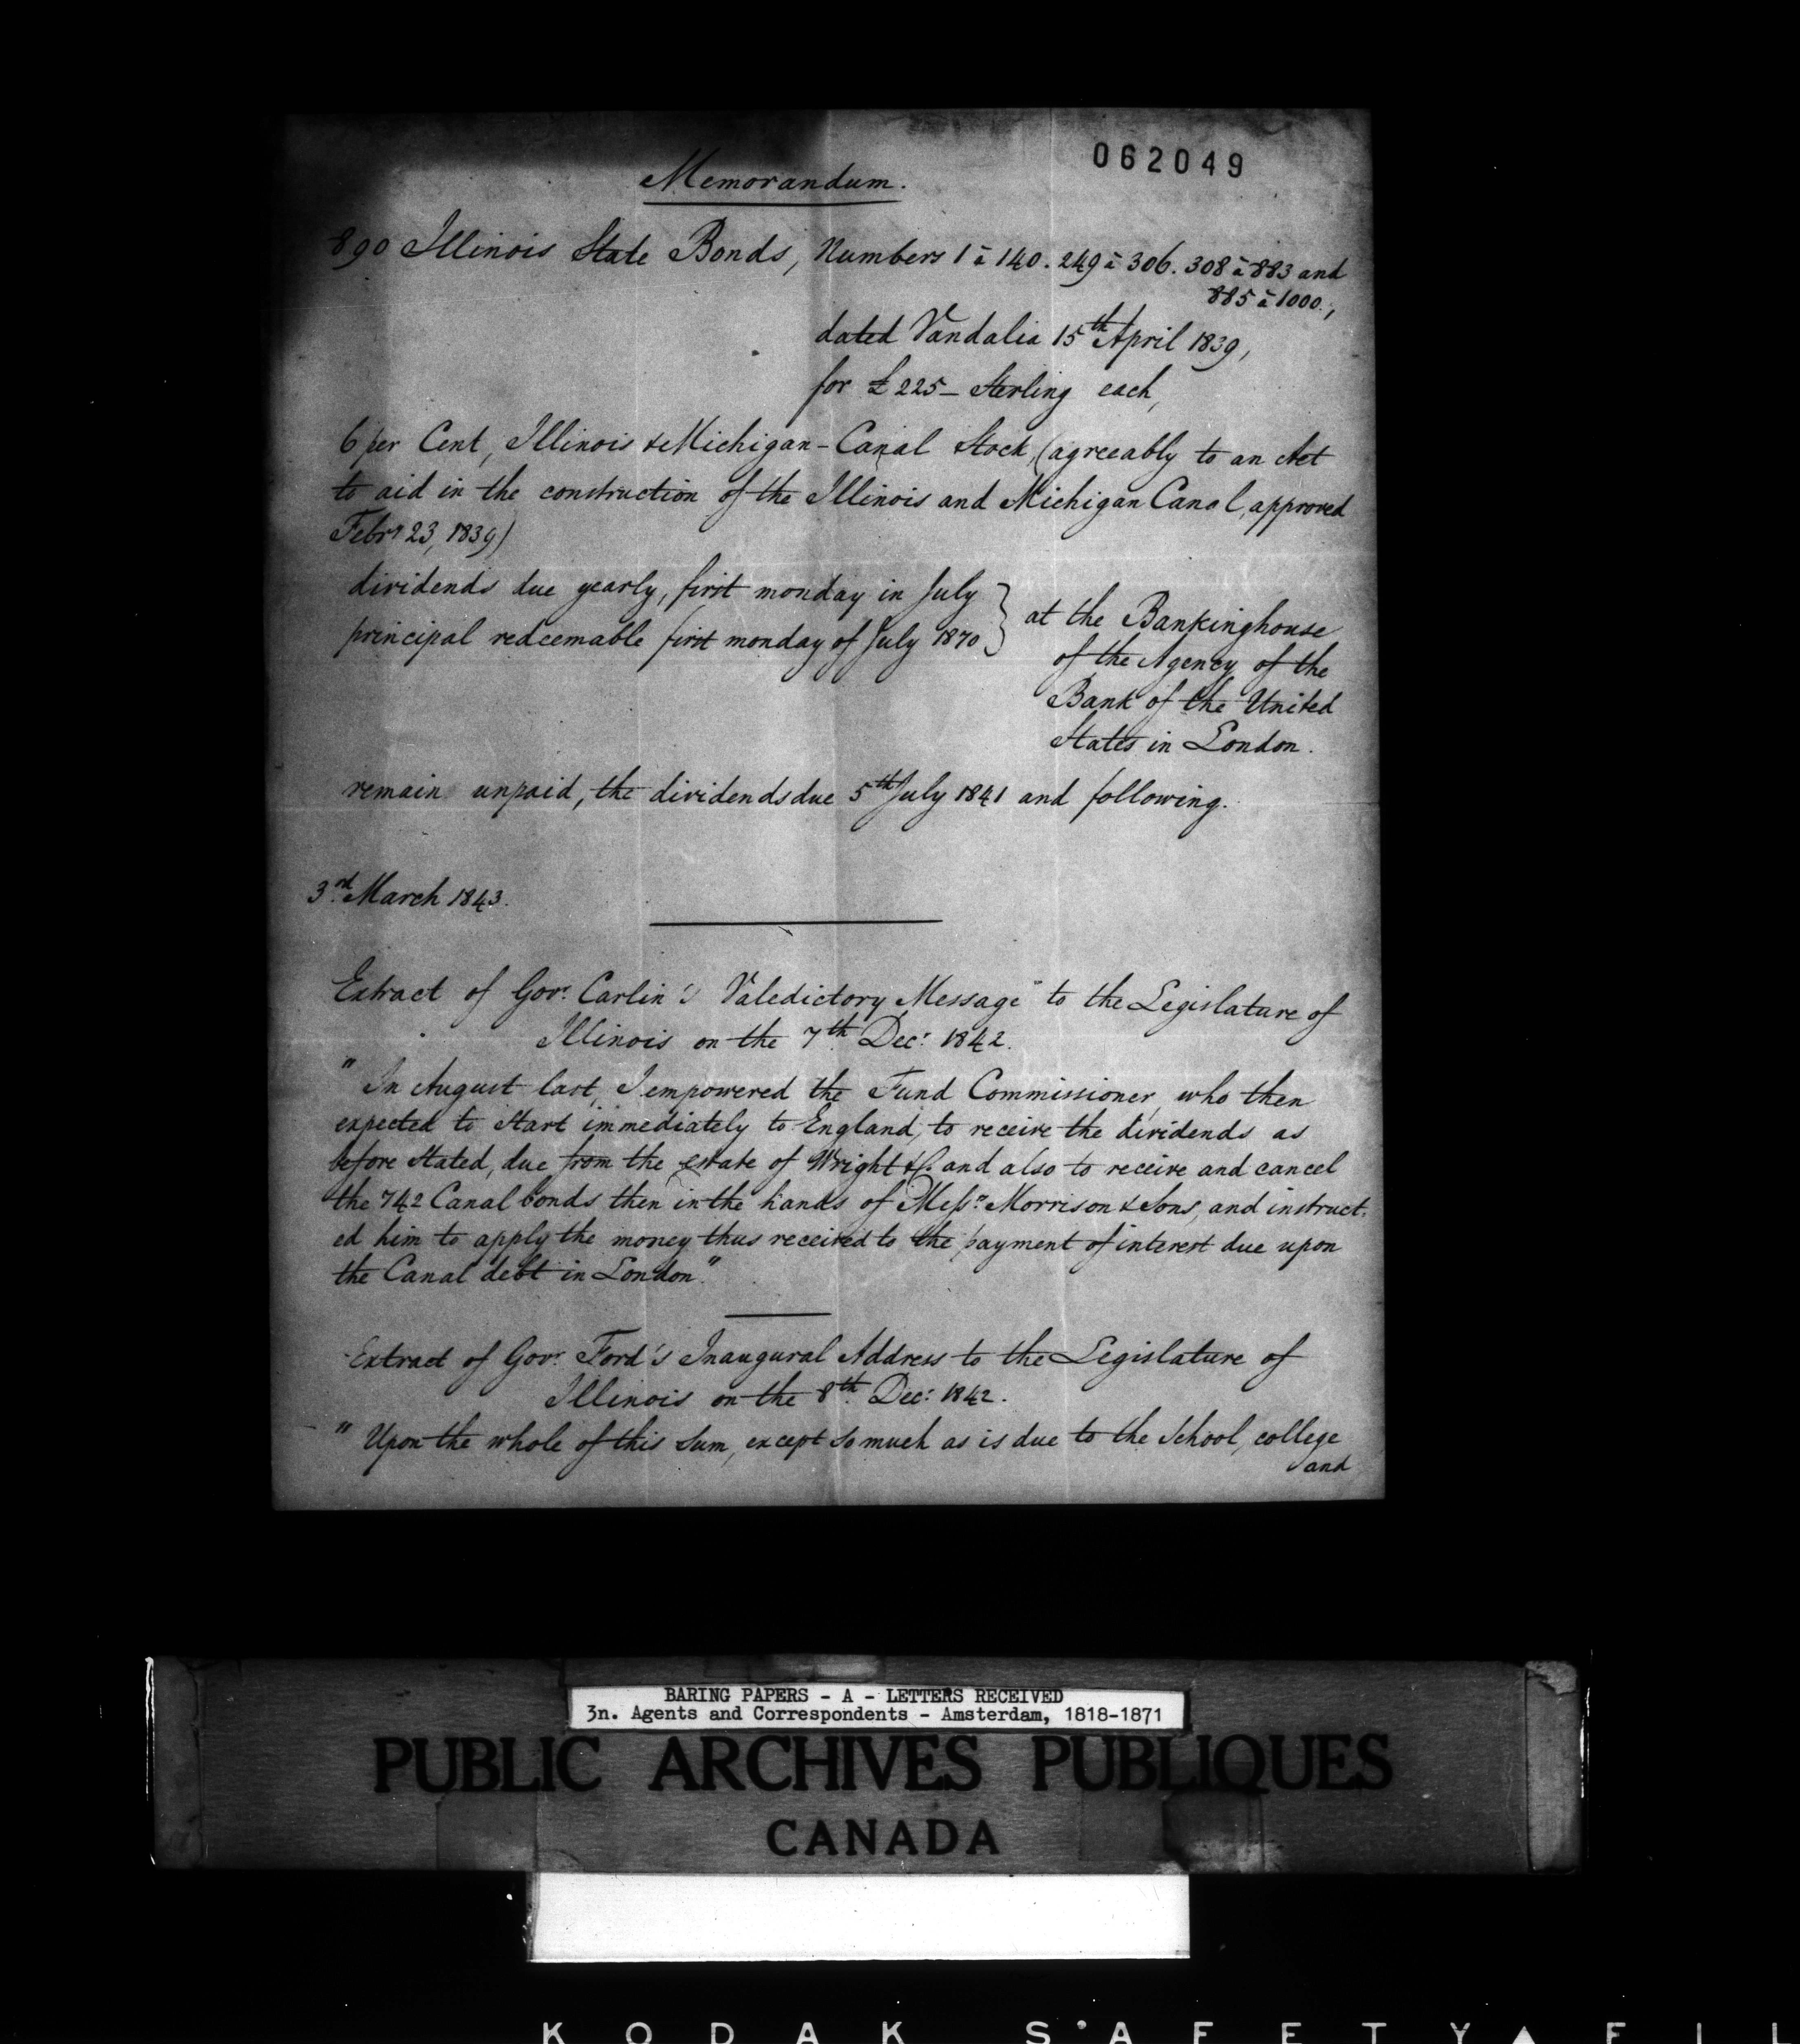 062049
Memorandum.
890 Illinois State Bonds, Numbers 1 à 140. 249 à 306. 308 à 883 and
885 à 1000.,
dated Vandalia 15th April 1839,
for £225 - Sterling each,
6 per Cent, Illinois & Michigan-Canal Stock, (agreeably to an Act
to aid in the construction of the Illinois and Michigan Canal, approved
Febry 23, 1839)
dividends due yearly, first monday in July
principal redeemable first monday of July 1870
} at the Bankinghouse
of the Agency of the
Bank of the United
States in London.
remain unpaid, the dividends due 5th July 1841 and following.
3rd March 1843.
Extract of Govr. Carlin's Valedictory Message" to the Legislature of
Illinois on the 7th Decr. 1842.
"In August last, I empowered the Fund Commissioner, who then
expected to start immediately to England, to receive the dividends as
before stated, due from the estate of Wright & Co. and also to receive and cancel
the 742 Canal bonds then in the hands of Messrs. Morrison & Sons, and instruct-
ed him to apply the money thus received to the payment of interest due upon
the Canal debt in London."
Extract of Govr. Ford's Inaugural Address to the Legislature of
Illinois on the 8th Decr. 1842.
"Upon the whole of this sum, except so much as is due to the School, college
and
BARING PAPERS - A - LETTERS RECEIVED
3n. Agents and Correspondents - Amsterdam, 1818-1871
PUBLIC ARCHIVES PUBLIQUES
CANADA
KODAK SAFETY▲FIL